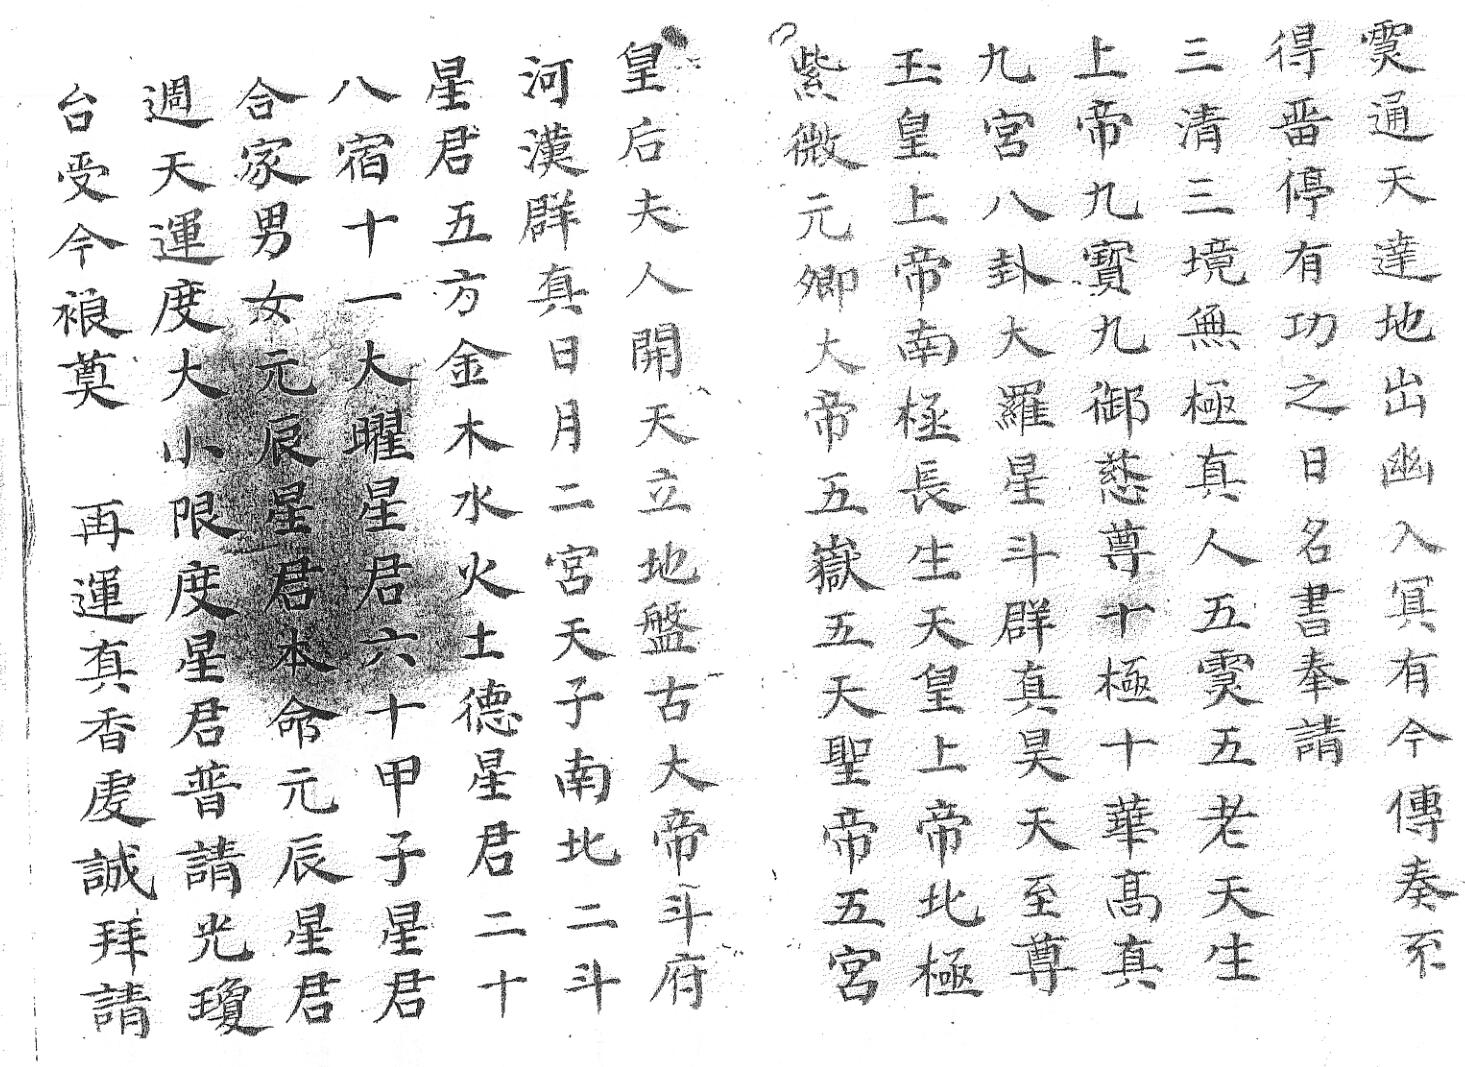 霛通天達地出幽入冥有今傳奏不
得畱停有功之日名書奉請
三清三境無極真人五霛五老天生
上帝九寶九御慈尊十極十華髙真
九宮八卦大羅星斗群真昊天至尊
玉皇上帝南極長生天皇上帝北極
紫微元卿大帝五嶽五天聖帝五宮
皇后夫人開天立地盤古大帝斗府
河漢群真日月二宮天子南北二斗
星君五方金木水火土德星君二十
八宿十一大曜星君六十甲子星君
合家男女元辰星君本命元辰星君
週天運度大小限度星君普請光瓊
台受今粮奠 再運真香虔誠拜請